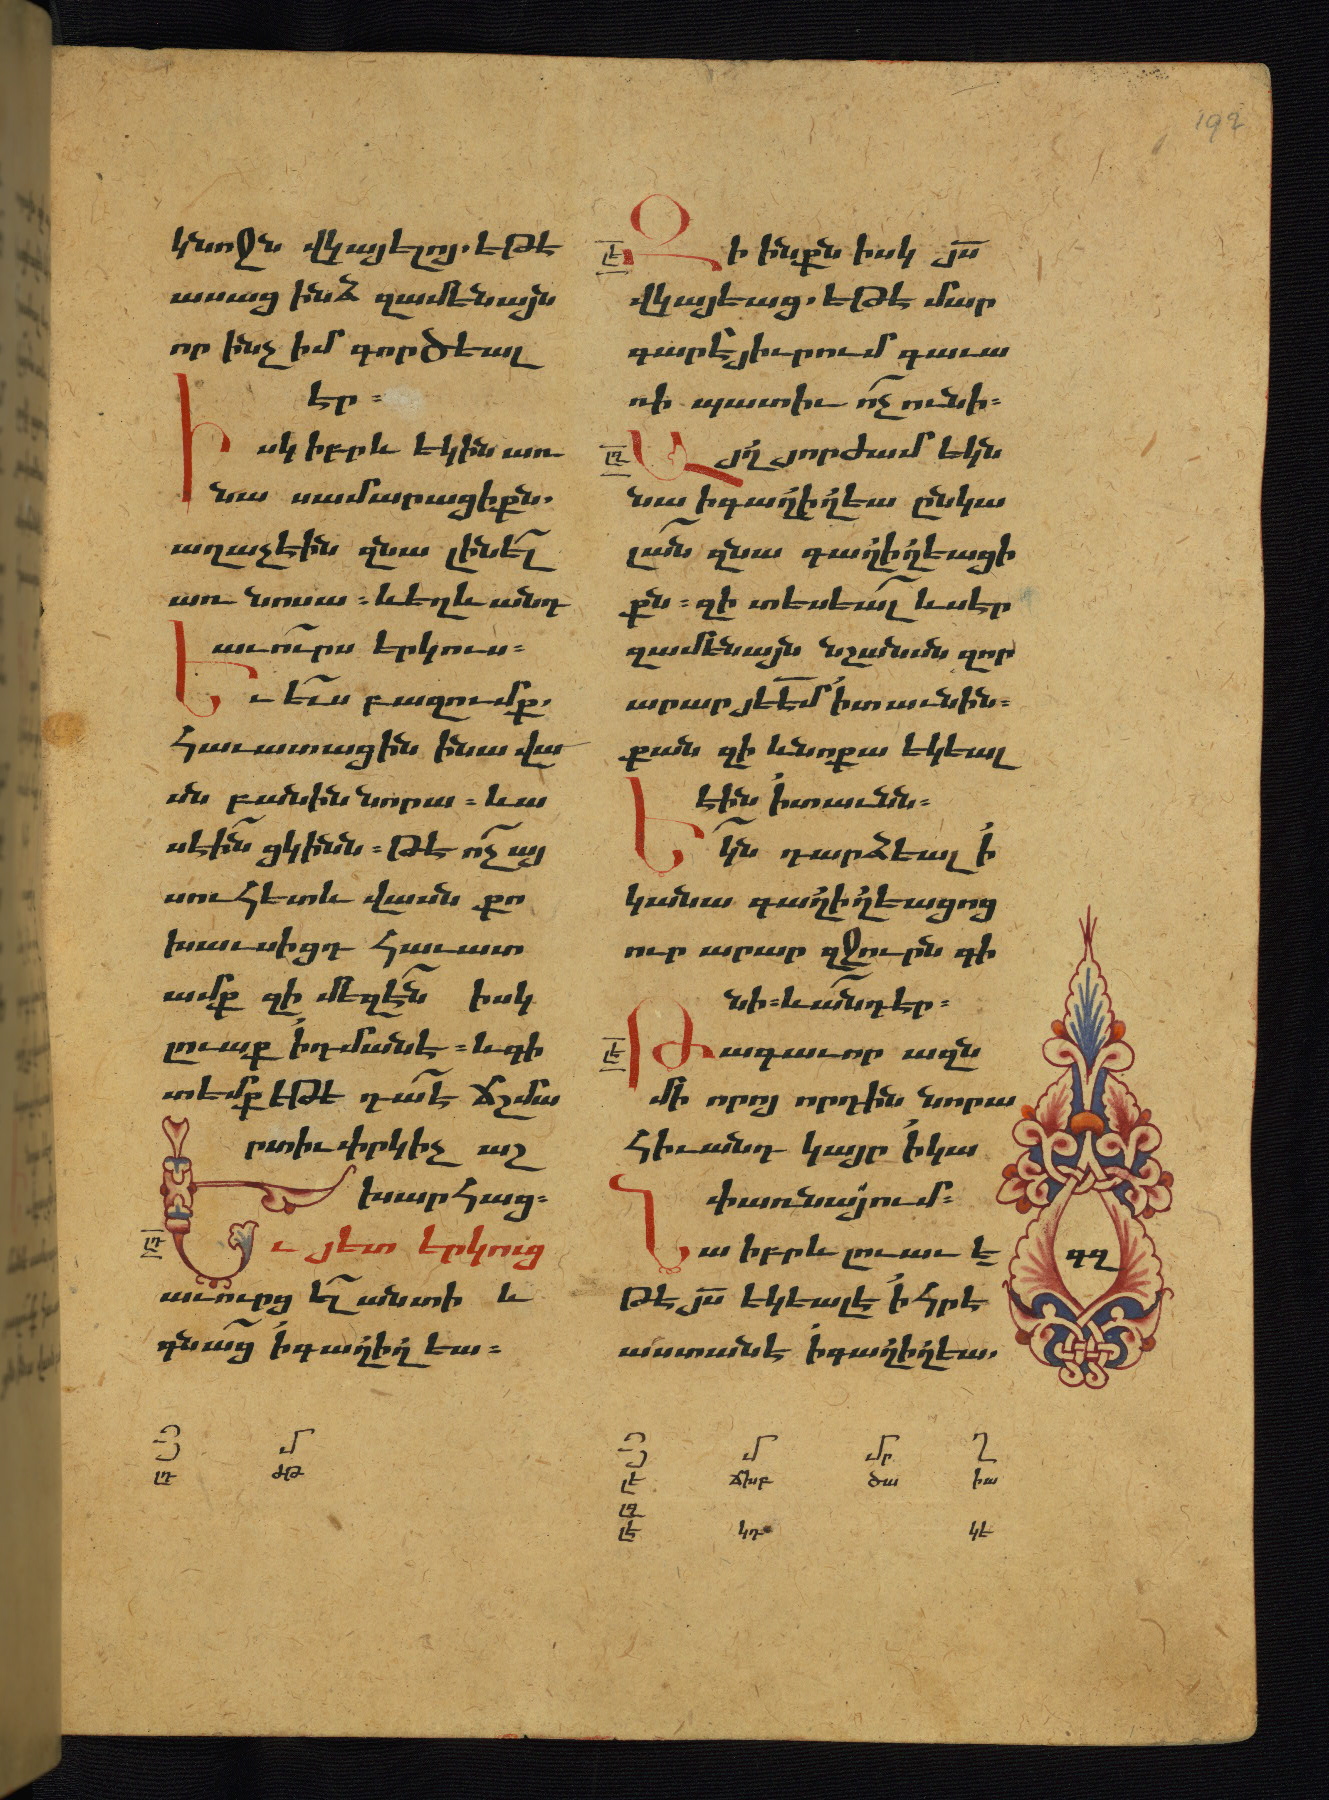 192
կնոջն վկայելոյ. եթե
ասաց ինձ զամենայն
որ ինչ իմ գործեալ
էր։
Իսկ իբրև եկին առ
նա սամարացիքն.
աղաչէին զնա լինել
առ նոսա։ և եղև անդ
աւուրս երկուս։
Եւ ևս բազումք.
հաւատացին ի նա վա
սն բանին նորա։ և ա
սէին ցկինն։ թէ ոչ այ
սու հետև վասն քո
խաւսիցդ հաւատ
ամք զի մեզէն իսկ
լուաք ի դմանէ։ և գի
տեմք եթե դա է ճշմա
րտիւ փրկիչ աշ
խարհաց։
լդ
Եւ յետ երկուց
աւուրց ել անտի և
գնաց ի գաղիղեա։
լե
Զի ինքն իսկ յս
վկայեաց. եթե մար
գարէ յիւրում գաւա
ռի պատիւ ոչ ունի։
լզ
Այլ յորժամ եկն
նա ի գաղիղեա ընկա
լան զնա գաղիղեացի
քն։ զի տեսեալ և սէր
զամենայն նշանսն զոր
արար յեէմ ի տաւնին։
քան զի և նոքա եկեալ
էին ի տաւնն։
Եկն դարձեալ ի
կանա գաղիղեացոց
ուր արար զջուրն գի
նի։ և անդ էր։
լէ
Թագաւոր ազն
մի որոյ որդին նորա
հիւանդ կայր ի կա
փառնայում։
Նա իբրև լուաւ ե
թե յս եկեալ է ի հրէ
աստանէ ի գաղիղեա.
գզ
Յ մ
լդ ժթ
Յ մ մր ղ
լե ճխբ ծա իա
լզ
լէ կդ կե